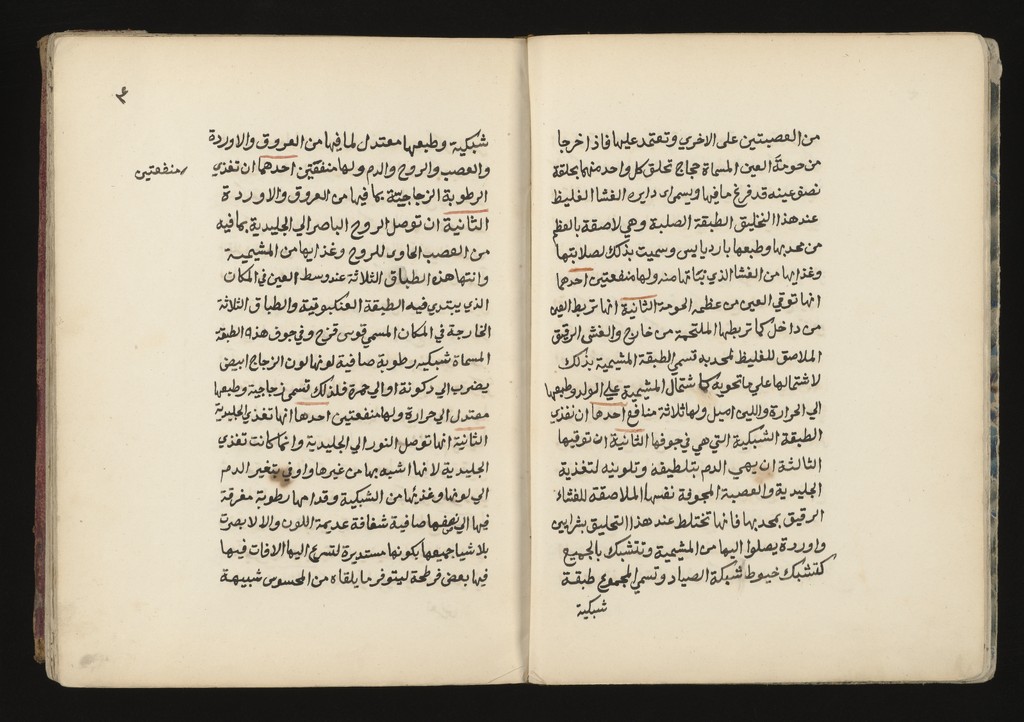 من العصبتين على الاخري وتعتمد عليها فاذا خرجا
من حومة العين المسماة حجاج تحلق كل واحد منهما بحلقة
نصف عينه قد فرغ ما فيها ويسمى دايره الغشا الغليظ
عند هذا التحليق الطبقة الصلبة وهي لاصقة بالعظم
من محدبها وطبعها بارد يابس وسميت بذلك لصلابتها
وغذايها من الغشا الذي نباتها منه ولها منفعتين احدهما
انها توقي العين من عظم الحومة الثانية انها تربط العين
من داخل كما تربطها الملتحمة من خارج والغشى الرقيق
الملاصق للغليظ بمحدبه تسمي الطبقة المشيمية بذلك
لاشتمالها علي ما تحويه كما شتمال المشيمية علي الولد وطبعها
الي الحرارة واللين اميل ولها ثلاثة منافع احدها ان تغذي
الطبقة الشبكية التي هي في جوفها الثانية ان توقيها
الثالثة ان يهي الدم بتلطيفه وتلوينه لتغذية
الجليدية والعصبة المجوفة نفسها الملاصقة للغشاء
الرقيق بمحدبها فانها تختلط عند هذا التحليق بشرايين
واوردة يصلوا اليها من المشيمية وتتشبك بالجميع
كتشبك خيوط شبكة الصياد وتسمي المجموع طبقة
شبكية
٤
شبكية وطبعها معتدل لما فيها من العروق والاوردة
والعصب والروح والدم ولها منفعتين احدهما ان تغذي
منفعتين
الرطوبة الزجاجية بما فيها من العروق والاوردة
الثانية ان توصل الروح الباصر الي الجليدية بما فيه
من العصب الحاوى للروح وغذايها من المشيمية
وانتها هذه الطباق الثلاثة عند وسط العين في المكان
الذي يبتدي فيه الطبقة العنكبوتية والطباق الثلاثة
الخارجة في المكان المسمي قوس قزح وفي جوف هذه الطبقة
المسماة شبكيه رطوبة صافية لونها لون الزجاج ابيض
يضرب الي دكونة او الي حمرة فلذلك تسمى زجاجية وطبعها
معتدل الي حرارة ولها منفعتين احدها انها تغذي الجليدية
الثانية انها توصل النور الي الجليدية وانما كانت تغذي
الجليدية لانها اشبه بها من غيرها واوفي بتغير الدم
الي لونها وغذيها من الشبكية وقدامها رطوبة مغرقة
فيها الي نصفها صافية شفافة عديمة اللون والا لابصرت
بلاشيا جميعها بكونها مستديرة لتسرع اليها الافات فيها
فيها بعض فرطحة ليتوفر ما يلقاه من المحسوس شبيهة